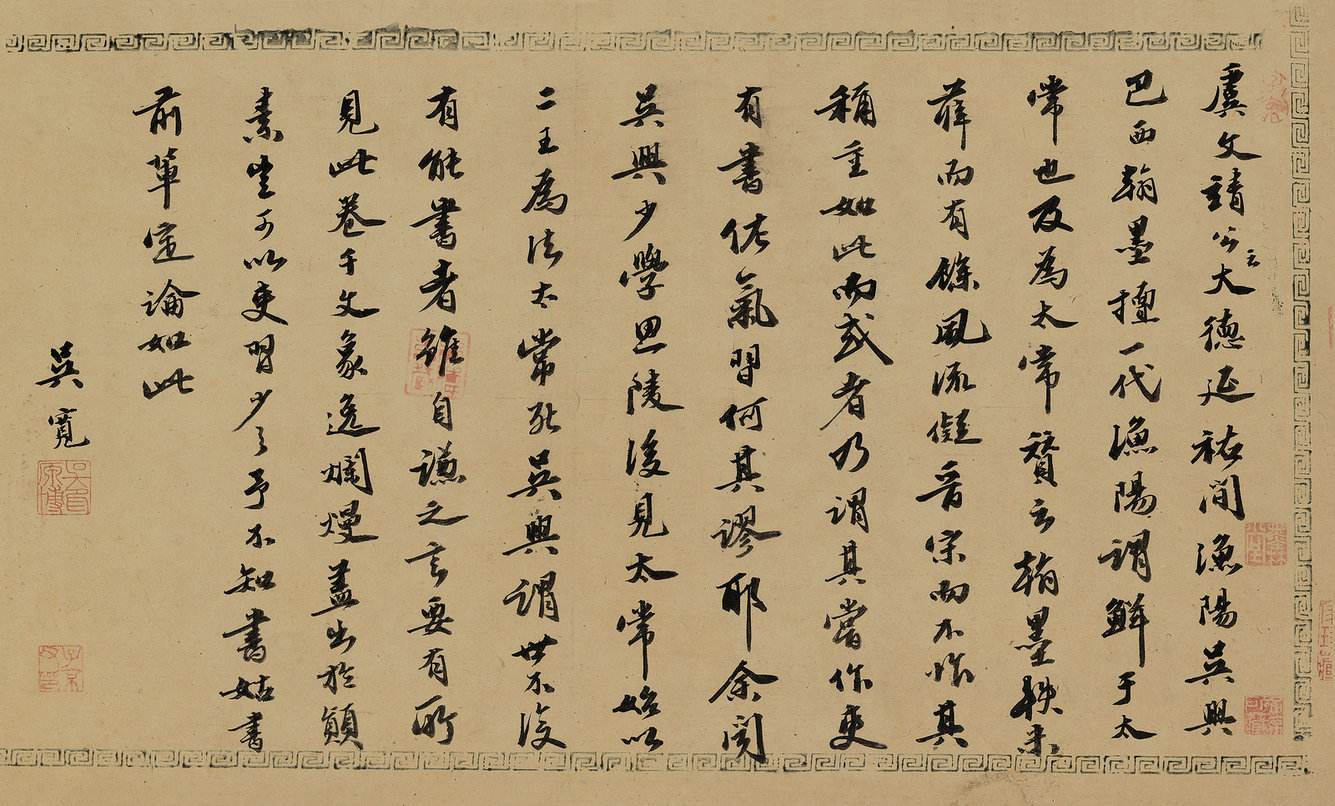 虞文靖公云大德延祐間漁陽吳興
巴西翰墨擅一代漁陽謂鮮于太
常也及為太常賛云翰墨軼米
薛而有餘風流儗晉宋而不怍其
稱重如此而或者乃謂其嘗作吏
有書佐氣習何其謬耶余聞
吳興少學思陵後見太常始以
二王為法太常死吳興謂世不復
有能書者雖自謙之言要有所
見此卷千文豪逸爛熳蓋出於顛
素豈可以吏習少之予不知書姑書
前輩定論如此
吳寬